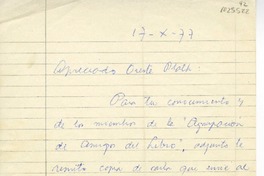 92
17-X-77
Apreciado Oreste Plath:
Para tu conocimiento y
de los miembros de la "Agrupación
de Amigos del Libro", adjunto te
remito copia de carta que envié al